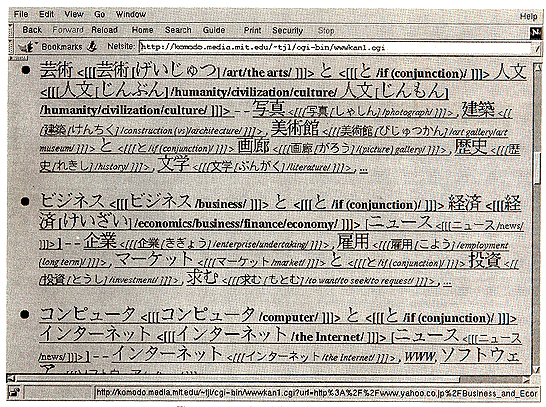 File Edit View Go Window Help
Back Forward Reload Home Search Guide Print Security Stop
Bookmarks Netsite: http://komodo.media.mit.edu/~tjl/cgi-bin/wwwkan1.cgi
芸術 <[[[芸術 [げいじゅつ] /art/the arts/ ]]]> と <[[[と /if (conjunction)/ ]]]> 人文
<[[[人文 [じんぶん] /humanity/civilization/culture/ 人文 [じんもん]
/humanity/civilization/culture/ ]]]> -- 写真 <[[[写真 [しゃしん] /photograph/ ]]]>, 建築 <[[
[建築 [けんちく] /construction (vs)/architecture/ ]]]>, 美術館 <[[[美術館 [びじゅつかん] /art gallery/art
museum/ ]]]> と <[[[と /if (conjunction)/ ]]]> 画廊 <[[[画廊 [がろう] /(picture) gallery/ ]]]>, 歴史 <[[[歴
史 [れきし] /history/ ]]]>, 文学 <[[[文学 [ぶんがく] /literature/ ]]]>, ...
ビジネス <[[[ビジネス /business/ ]]]> と <[[[と /if (conjunction)/ ]]]> 経済 <[[[経
済 [けいざい] /economics/business/finance/economy/ ]]]> [ニュース <[[[ニュース /news/
]]]>] -- 企業 <[[[企業 [きぎょう] /enterprise/undertaking/ ]]]>, 雇用 <[[[雇用 [こよう] /employment
(long term)/ ]]]>, マーケット <[[[マーケット /market/ ]]]> と <[[[と /if (conjunction)/ ]]]> 投資 <[[
[投資 [とうし] /investment/ ]]]>, 求む <[[[求む [もとむ] /to want/to seek/to request/ ]]]>, ...
コンピュータ <[[[コンピュータ /computer/ ]]]> と <[[[と /if (conjunction)/ ]]]>
インターネット <[[[インターネット /the Internet/ ]]]> [ニュース <[[[ニュース
/news/ ]]]>] -- インターネット <[[[インターネット /the Internet/ ]]]>, WWW, ソフトウェ
ア
http://komodo.media.mit.edu/~tjl/cgi-bin/wwwkan1.cgi?url=http%3A%2F%2Fwww.yahoo.co.jp%2FBusiness_and_Econ